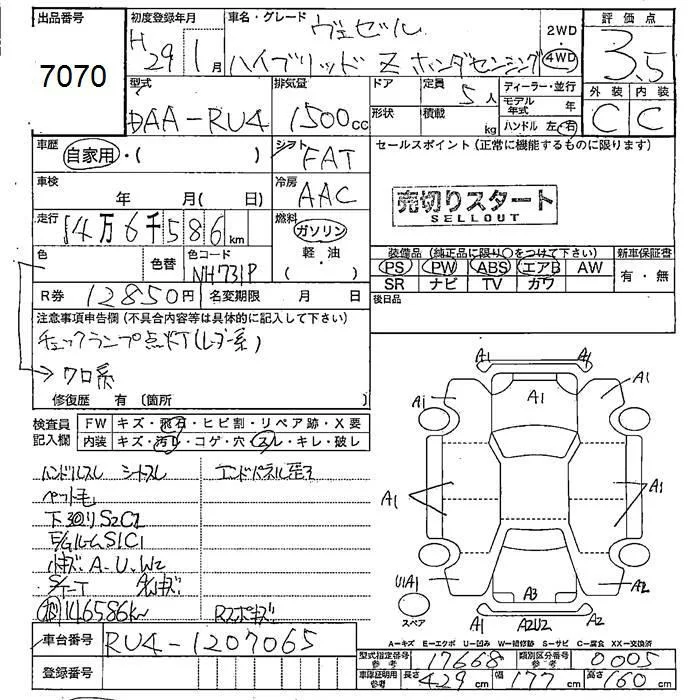 出品番号
7070
初度登録年月
H29 1月
車名・グレード
ヴェゼル
ハイブリッド Z ホンダセンシング
2WD
・
4WD
評価点
3.5
外装 内装
C C
型式
DAA-RU4
排気量
1500cc
ドア
形状
定員
5人
積載
kg
ディーラー・並行
モデル年式 年
ハンドル 左・右
車歴
自家用・( )
シフト
FAT
セールスポイント (正常に機能するものに限ります)
車検
年 月( 日)
冷房
AAC
売切りスタート
SELLOUT
走行
14万6千586km
燃料
ガソリン
・
軽・油
( )
色
色替
色コード
NH731P
装備品 (純正品に限り○をつけて下さい)
新車保証書
PS PW ABS エアB AW
SR ナビ TV カワ
有・無
R券 12850円 名変期限 月 日
後日品
注意事項申告欄 (不具合内容等は具体的に記入して下さい)
チェックランプ点灯(レーダー系)
クロ系
修復歴 有 〔箇所 〕
検査員記入欄
FW キズ・飛石・ヒビ割・リペア跡・X要
内装 キズ・汚れ・コゲ・穴・スレ・キレ・破レ
ハンドルスレ シートスレ
エンドパネル歪み
ペット毛
下回りS2C2
E/GルームS1C1
小キズ A・U・W2
146586km
車台番号 RU4-1207065
登録番号
A1 A1
A1 A1 A1
A1 A1
U1A1 A3 A2
スペア
A1 A2U2 A2
A-キズ E-エクボ U-凹み W-補修跡 S-サビ C-腐食 XX-交換済
型式指定番号 参考 17668 類別区分番号 参考 0005
車庫証明用 参考 長さ 429cm 幅 177cm 高さ 160cm